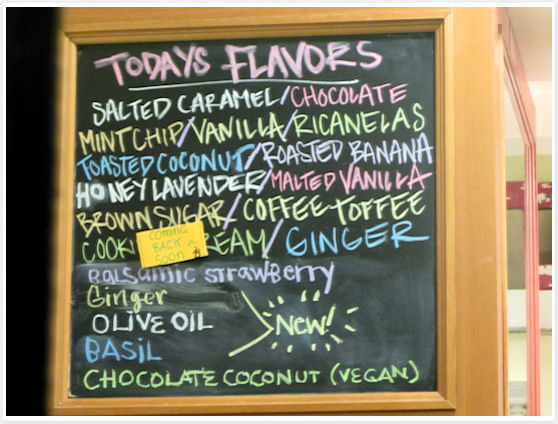 TODAYS FLAVORS
SALTED CARAMEL/CHOCOLATE
MINT CHIP/VANILLA/RICANELAS
TOASTED COCONUT/ROASTED BANANA
HONEY LAVENDER/MALTED VANILLA
BROWN SUGAR/COFFEE TOFFEE
COOK REAM/GINGER
COMING
BACK
SOON
BALSAMIC STRAWBERRY
Ginger
OLIVE OIL
New!
BASIL
CHOCOLATE COCONUT (VEGAN)